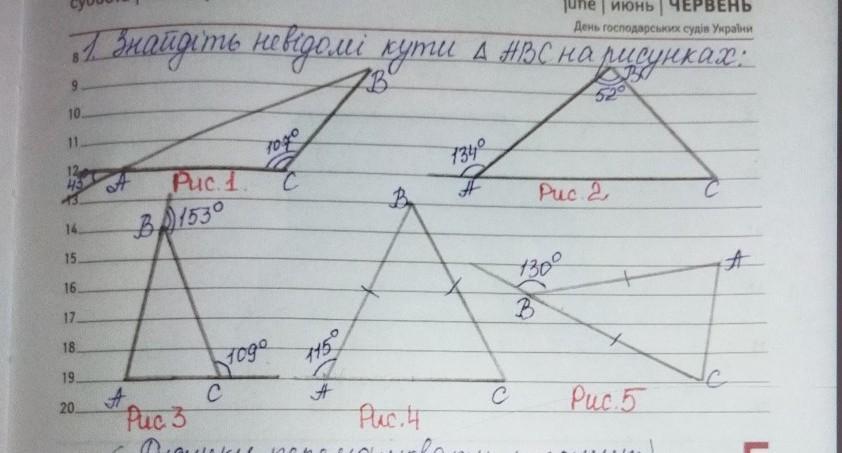 june | июнь | ЧЕРВЕНЬ
День господарських судів України
1. Знайдіть невідомі кути Δ ABC на рисунках:
8
9
10
11
12
13
14
15
16
17
18
19
20
B
107°
43°
A
C
Рис.1
B
52°
134°
A
C
Рис.2
B
153°
109°
A
C
Рис.3
B
115°
A
C
Рис.4
130°
A
B
C
Рис.5